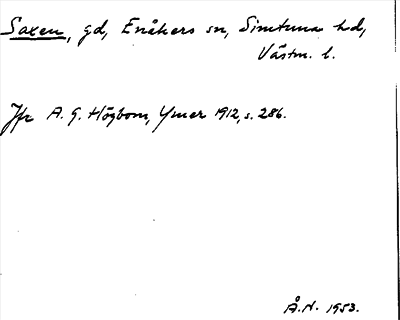 Saxen, gd, Enåkers sn, Simtuna hd,
Västm. l.
Jfr A. G. Högbom, Ymer 1912, s. 286.
Å.N. 1953.